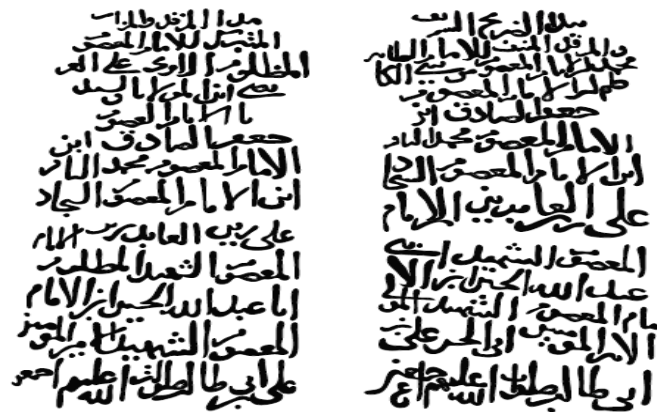 هذا الضريح الشريف
والمرقد المنيف للامام الطاهر
محمد ابن الامام المعصوم موسى الكا
ظم ابن الامام المعصوم
جعفر الصادق ابن
الامام المعصوم محمد الباقر
ابن الامام المعصوم السجاد
على زين العابدين ابن الامام
المعصوم الشهيد ابى
عبد الله الحسين ابن الا
مام المعصوم الشهيد
الامير المومنين ابى الحسن على بن
ابى طالب صلوات الله عليهم اجمعين
هذا المرقد
المتبرك للامام المعصوم
المظلوم على العر
يضى ابن الامام السيد
الامام المعصوم
جعفر الصادق ابن
الامام المعصوم محمد الباقر
ابن الامام المعصوم السجاد
على زين العابدين ابن الامام
المعصوم الشهيد المظلوم
ابا عبد الله الحسين ابن الامام
المعصوم الشهيد امير المومنين
على بن ابى طالب صلوات الله عليهم اجمعين